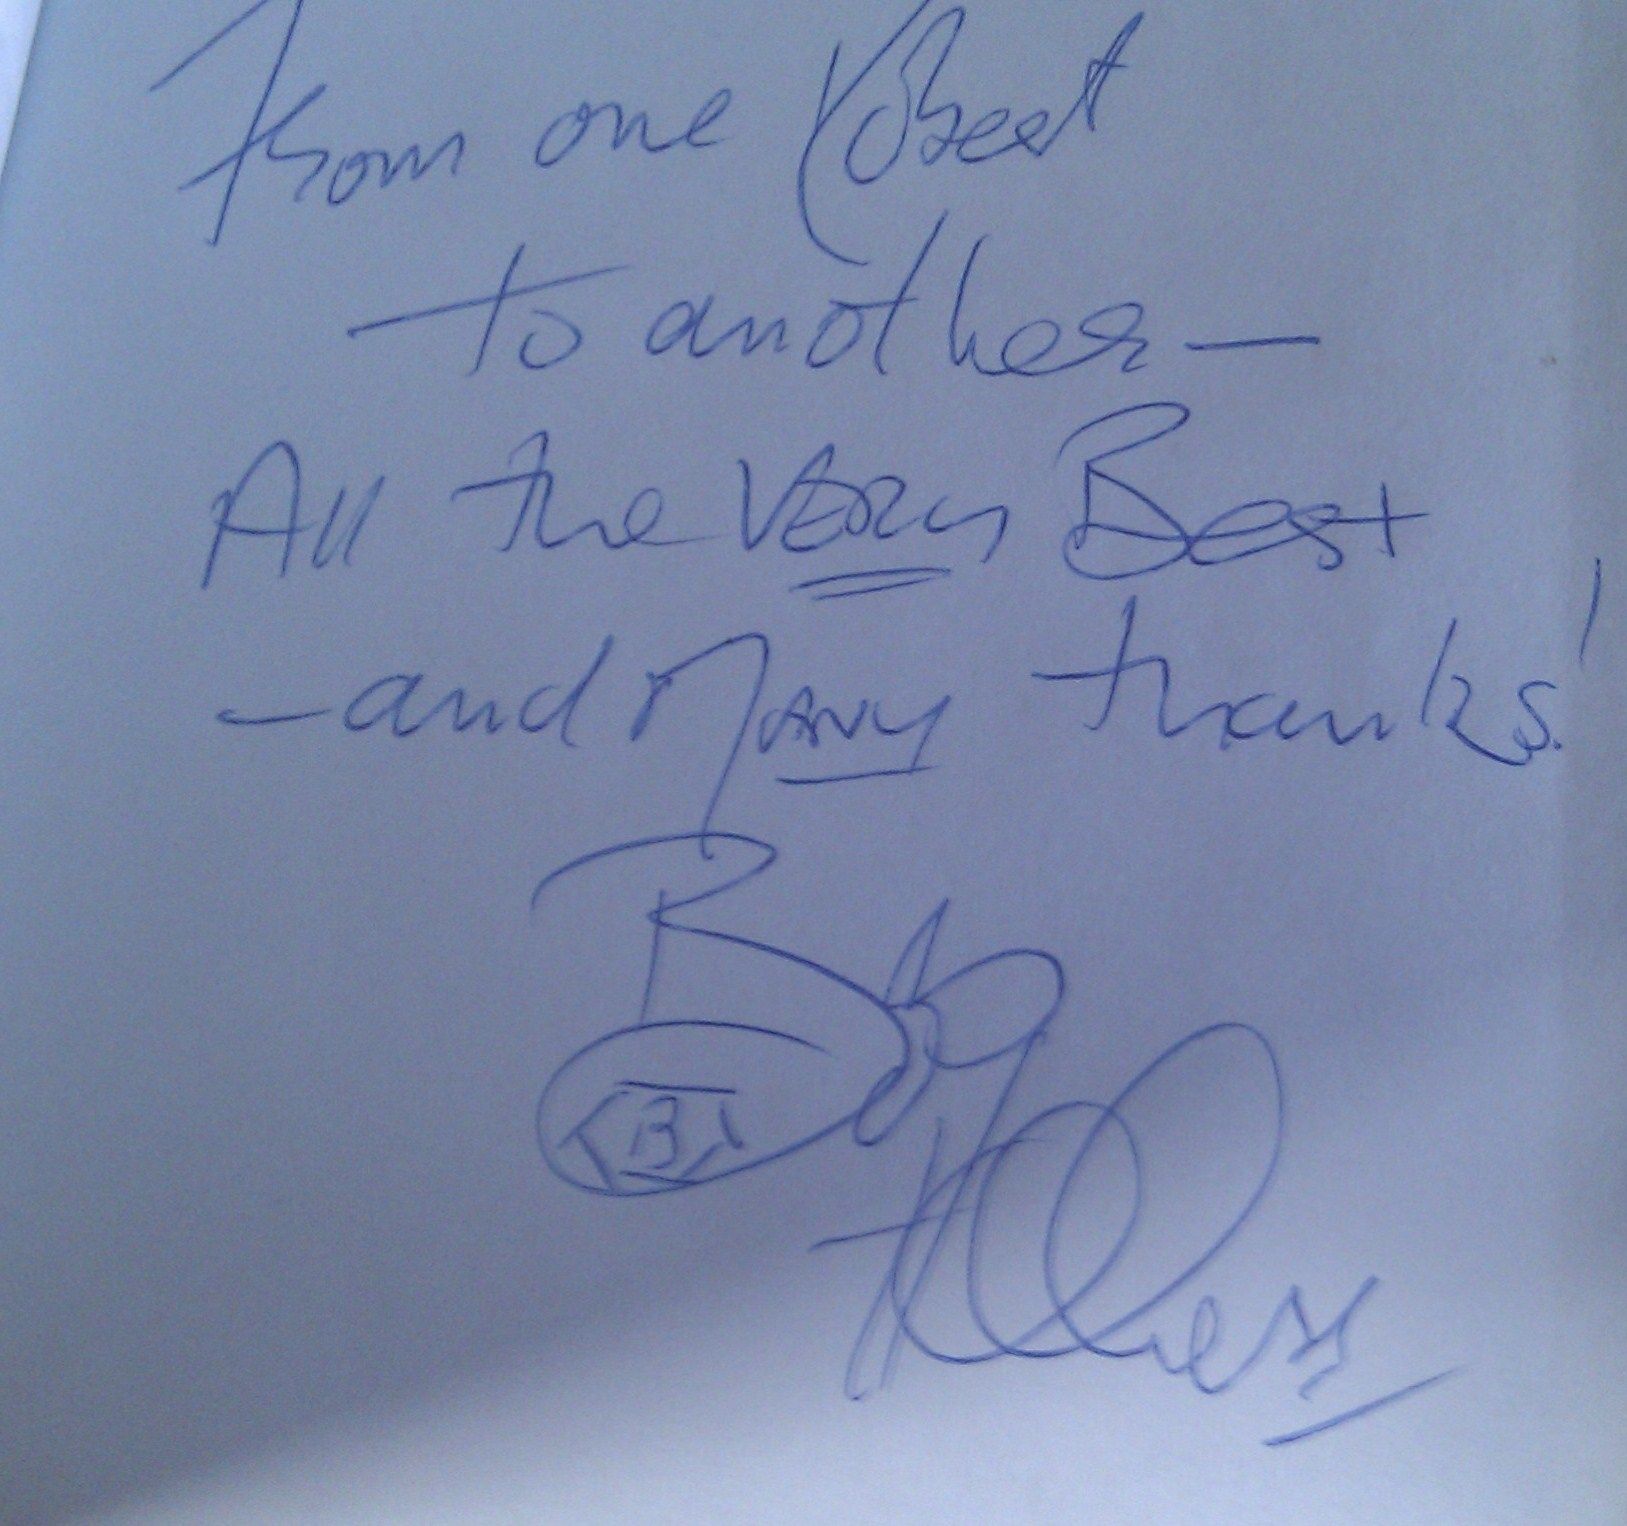 From one Robert
- to another -
All the VERy Best
- and MANy thanks!
Bob
B